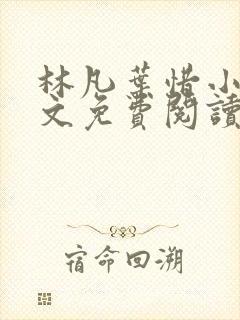 林凡葉惜小
文免費閱讀
宿命回溯